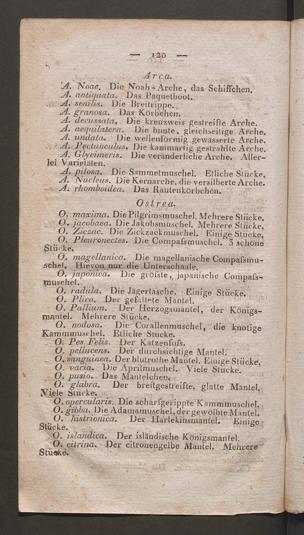 — 120 —
Arca.
A. Noae. Die Noah-Arche, das Schiffchen.
A. antiquata. Das Paquetboot.
A. senilis. Die Breitrippe.
A. granosa. Das Körbchen.
A. decussata. Die kreuzweis gestreifte Arche.
A. aequilatera. Die bunte, gleichseitige Arche.
A. undata. Die wellenförmig gewässerte Arche.
A. Pectunculus. Die kammartig gestrahlte Arche.
A. Glycimeris. Die veränderliche Arche. Aller-
lei Varietäten.
A. pilosa. Die Sammetmuschel. Etliche Stücke.
A. Nucleus. Die Kernarche, die versilberte Arche.
A. rhomboidea. Das Rautenkörbchen.
Ostrea.
O. maxima. Die Pilgrimsmuschel. Mehrere Stücke.
O. jacobaea. Die Jakobsmuschel. Mehrere Stücke.
O. Ziczac. Die Zickzackmuschel. Einige Stücke.
O. Pleuronectes. Die Compaſsmuschel. 3 schöne
Stücke.
O. magellanica. Die magellanische Compaſsmu-
schel. Hievon nur die Unterschaale.
O. japonica. Die gröſste, japanische Compaſs-
muschel.
O. radula. Die Jägertasche. Einige Stücke.
O. Plica. Der gefaltete Mantel.
O. Pallium. Der Herzogsmantel, der Königs-
mantel. Mehrere Stücke.
O. nodosa. Die Corallenmuschel, die knotige
Kammmuschel. Etliche Stücke.
O. Pes Felis. Der Katzenfuſs.
O. pellucens. Der durchsichtige Mantel.
O. sanguinea. Der blutrothe Mantel. Einige Stücke.
O. varia. Die Aprilmuschel. Viele Stücke.
O. pusio. Das Mäntelchen.
O. glabra. Der breitgestreifte, glatte Mantel.
Viele Stücke.
O. opercularis. Die scharfgerippte Kammmuschel.
O. gibba. Die Adamsmuschel, der gewölbte Mantel.
O. histrionica. Der Harlekinsmantel. Einige
Stücke.
O. islandica. Der isländische Königsmantel.
O. citrina. Der citronengelbe Mantel. Mehrere
Stücke.